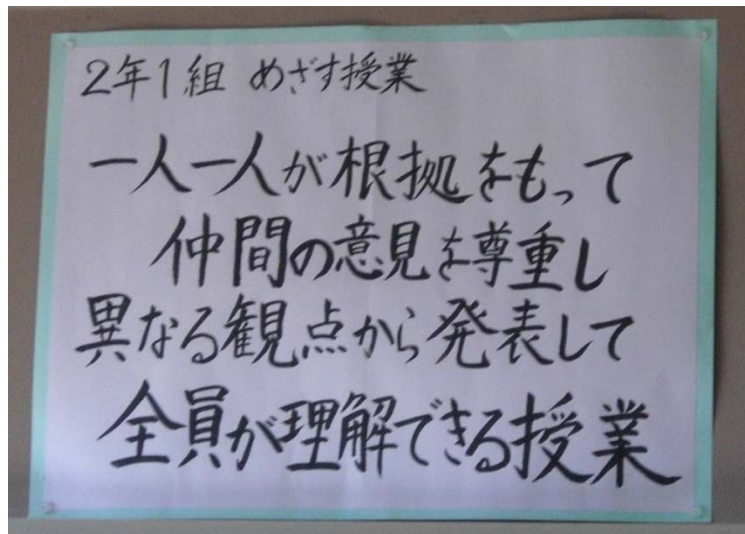 2年1組 めざす授業
一人一人が根拠をもって
仲間の意見を尊重し
異なる観点から発表して
全員が理解できる授業